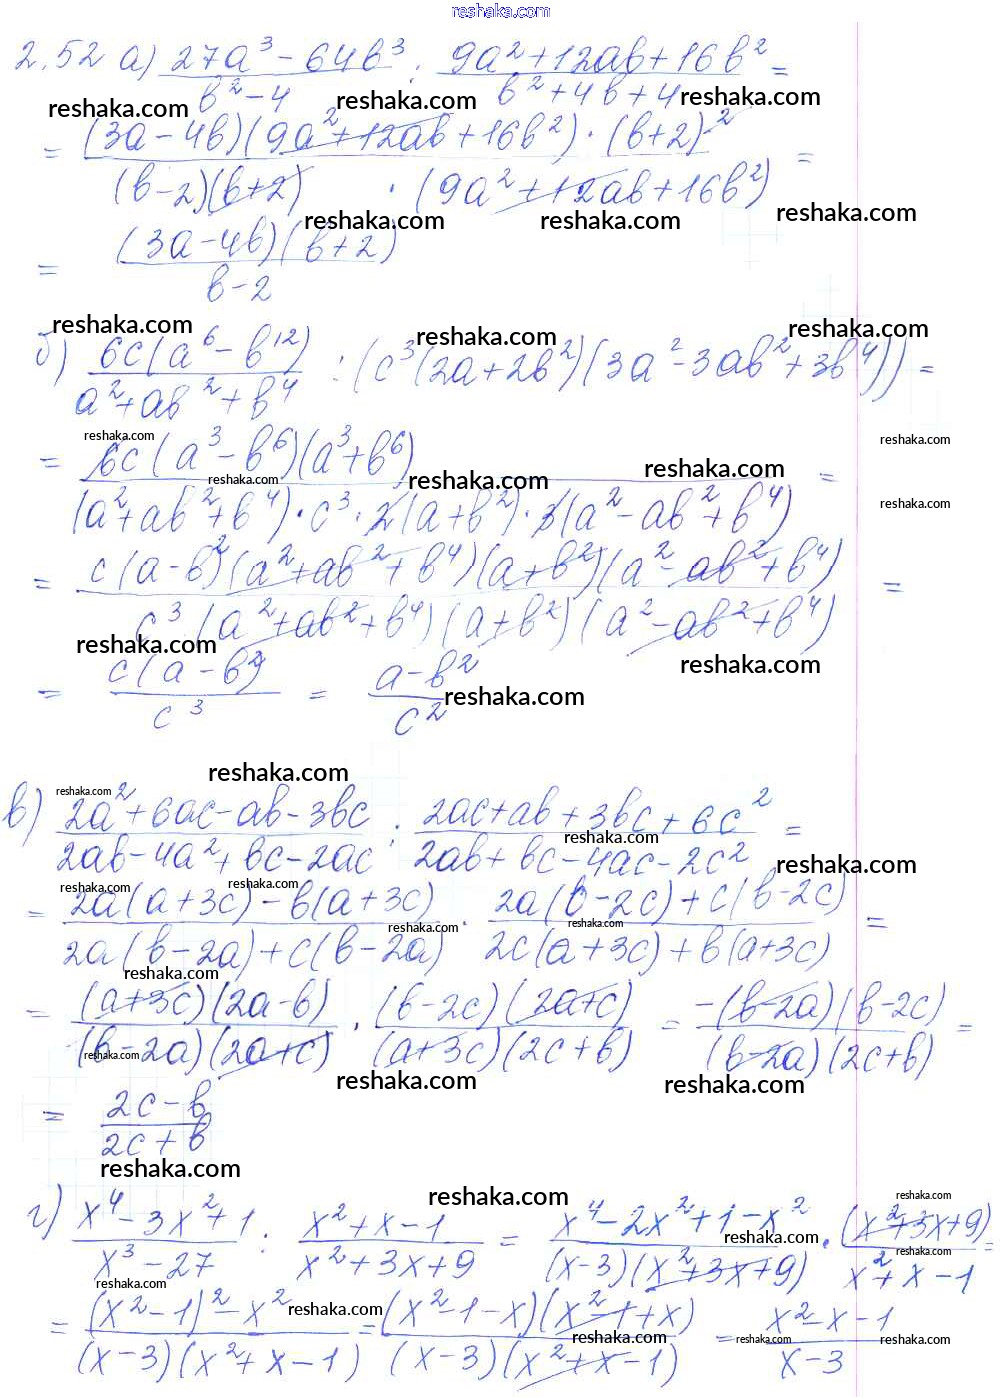 reshaka.com
2.52 а) (27a³ - 64b³)/(b² - 4) : (9a² + 12ab + 16b²)/(b² + 4b + 4) =
reshaka.com reshaka.com reshaka.com
= ((3a - 4b)(9a² + 12ab + 16b²) · (b + 2)²)/((b - 2)(b + 2) · (9a² + 12ab + 16b²)) =
reshaka.com reshaka.com reshaka.com
= ((3a - 4b)(b + 2))/(b - 2)
reshaka.com reshaka.com reshaka.com
б) (6c(a⁶ - b¹²))/(a² + ab² + b⁴) : (c³(2a + 2b²)(3a² - 3ab² + 3b⁴)) =
reshaka.com reshaka.com
= (6c(a³ - b⁶)(a³ + b⁶))/((a² + ab² + b⁴) · c³ · 2(a + b²) · 3(a² - ab² + b⁴)) =
reshaka.com reshaka.com reshaka.com reshaka.com
= (c(a - b²)(a² + ab² + b⁴)(a + b²)(a² - ab² + b⁴))/(c³(a² + ab² + b⁴)(a + b²)(a² - ab² + b⁴)) =
reshaka.com reshaka.com
= (c(a - b²))/c³ = (a - b²)/c²
reshaka.com
reshaka.com reshaka.com
в) (2a² + 6ac - ab - 3bc)/(2ab - 4a² + bc - 2ac) : (2ac + ab + 3bc + 6c²)/(2ab + bc - 4ac - 2c²) =
reshaka.com reshaka.com
reshaka.com reshaka.com
= (2a(a + 3c) - b(a + 3c))/(2a(b - 2a) + c(b - 2a)) · (2a(b - 2c) + c(b - 2c))/(2c(a + 3c) + b(a + 3c)) =
reshaka.com reshaka.com
reshaka.com
= ((a + 3c)(2a - b))/((b - 2a)(2a + c)) · ((b - 2c)(2a + c))/((a + 3c)(2c + b)) = (-(b - 2a)(b - 2c))/((b - 2a)(2c + b)) =
reshaka.com reshaka.com reshaka.com
= (2c - b)/(2c + b)
reshaka.com
reshaka.com reshaka.com
г) (x⁴ - 3x² + 1)/(x³ - 27) : (x² + x - 1)/(x² + 3x + 9) = (x⁴ - 2x² + 1 - x²)/((x - 3)(x² + 3x + 9)) · (x² + 3x + 9)/(x² + x - 1) =
reshaka.com reshaka.com reshaka.com
= ((x² - 1)² - x²)/((x - 3)(x² + x - 1)) = ((x² - 1 - x)(x² - 1 + x))/((x - 3)(x² + x - 1)) = (x² - x - 1)/(x - 3)
reshaka.com reshaka.com reshaka.com reshaka.com